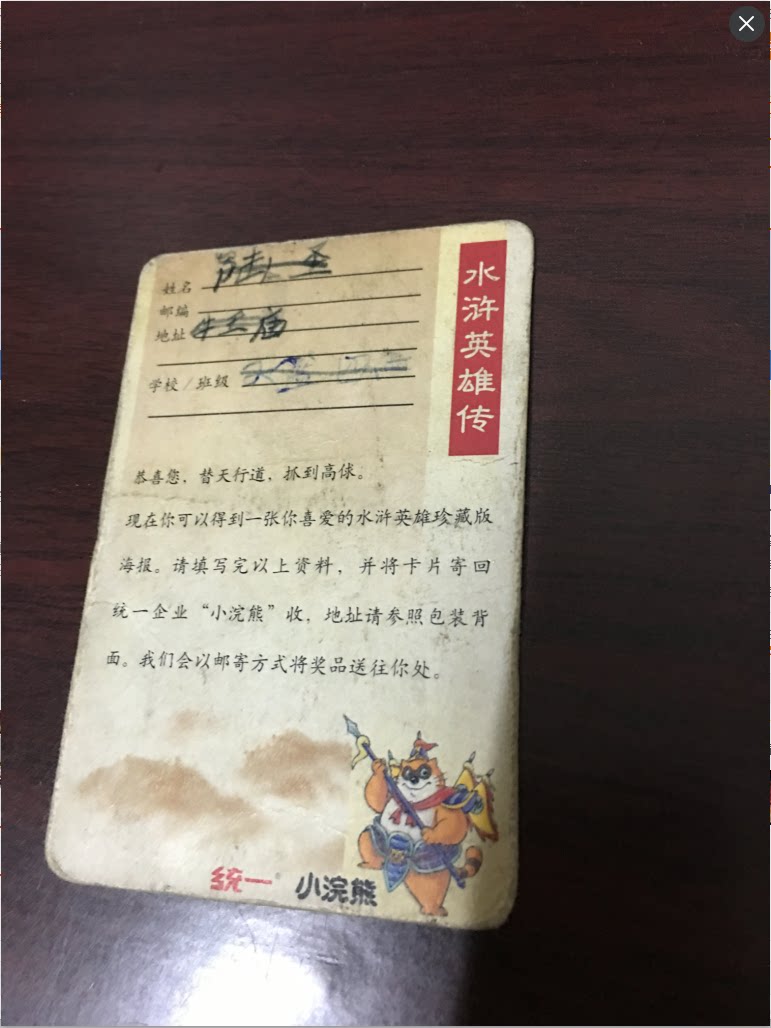 水浒英雄传
姓名
邮编
地址 牛王庙
学校／班级
恭喜您，替天行道，抓到高俅。
现在你可以得到一张你喜爱的水浒英雄珍藏版
海报。请填写完以上资料，并将卡片寄回
统一企业“小浣熊”收，地址请参照包装背
面。我们会以邮寄方式将奖品送往你处。
统一 小浣熊